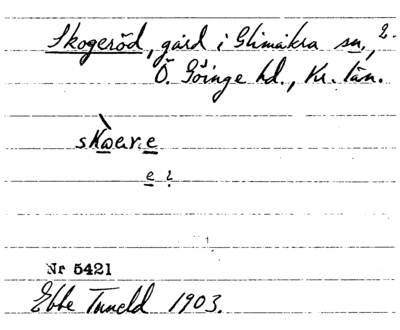 Skogeröd, gård i Glimåkra sn, 2.
Ö. Göinge hd., Kr. län.
skὼər.e
e ?
Nr 5421
Ebbe Tuneld 1903.